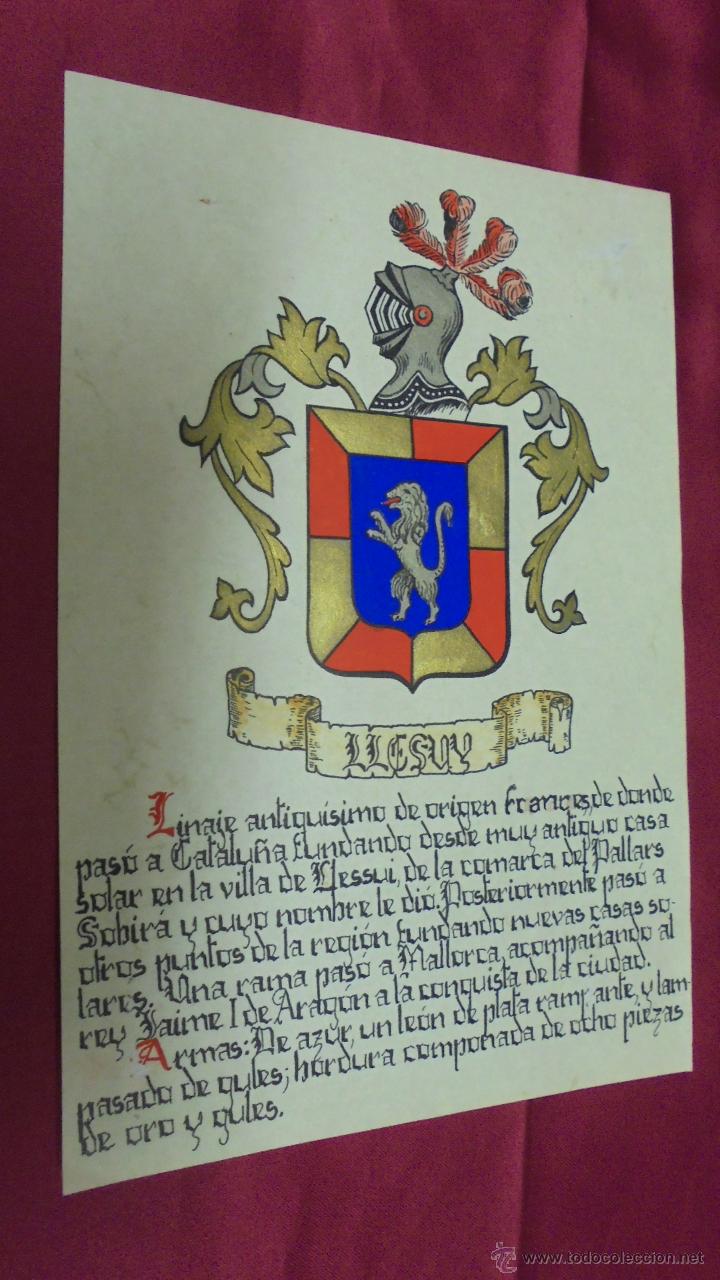 LLESUY
Linaje antiquísimo de origen francés, de donde
pasó a Cataluña fundando desde muy antiguo casa
solar en la villa de Llessui, de la comarca del Pallars
Sobirá y cuyo nombre le dió. Posteriormente pasó a
otros puntos de la región fundando nuevas casas so-
lares. Una rama pasó a Mallorca, acompañando al
rey Jaime I de Aragón a la conquista de la ciudad.
Armas: De azur, un león de plata rampante, y lam-
pasado de gules; bordura componada de ocho piezas
de oro y gules.
www.todocoleccion.net